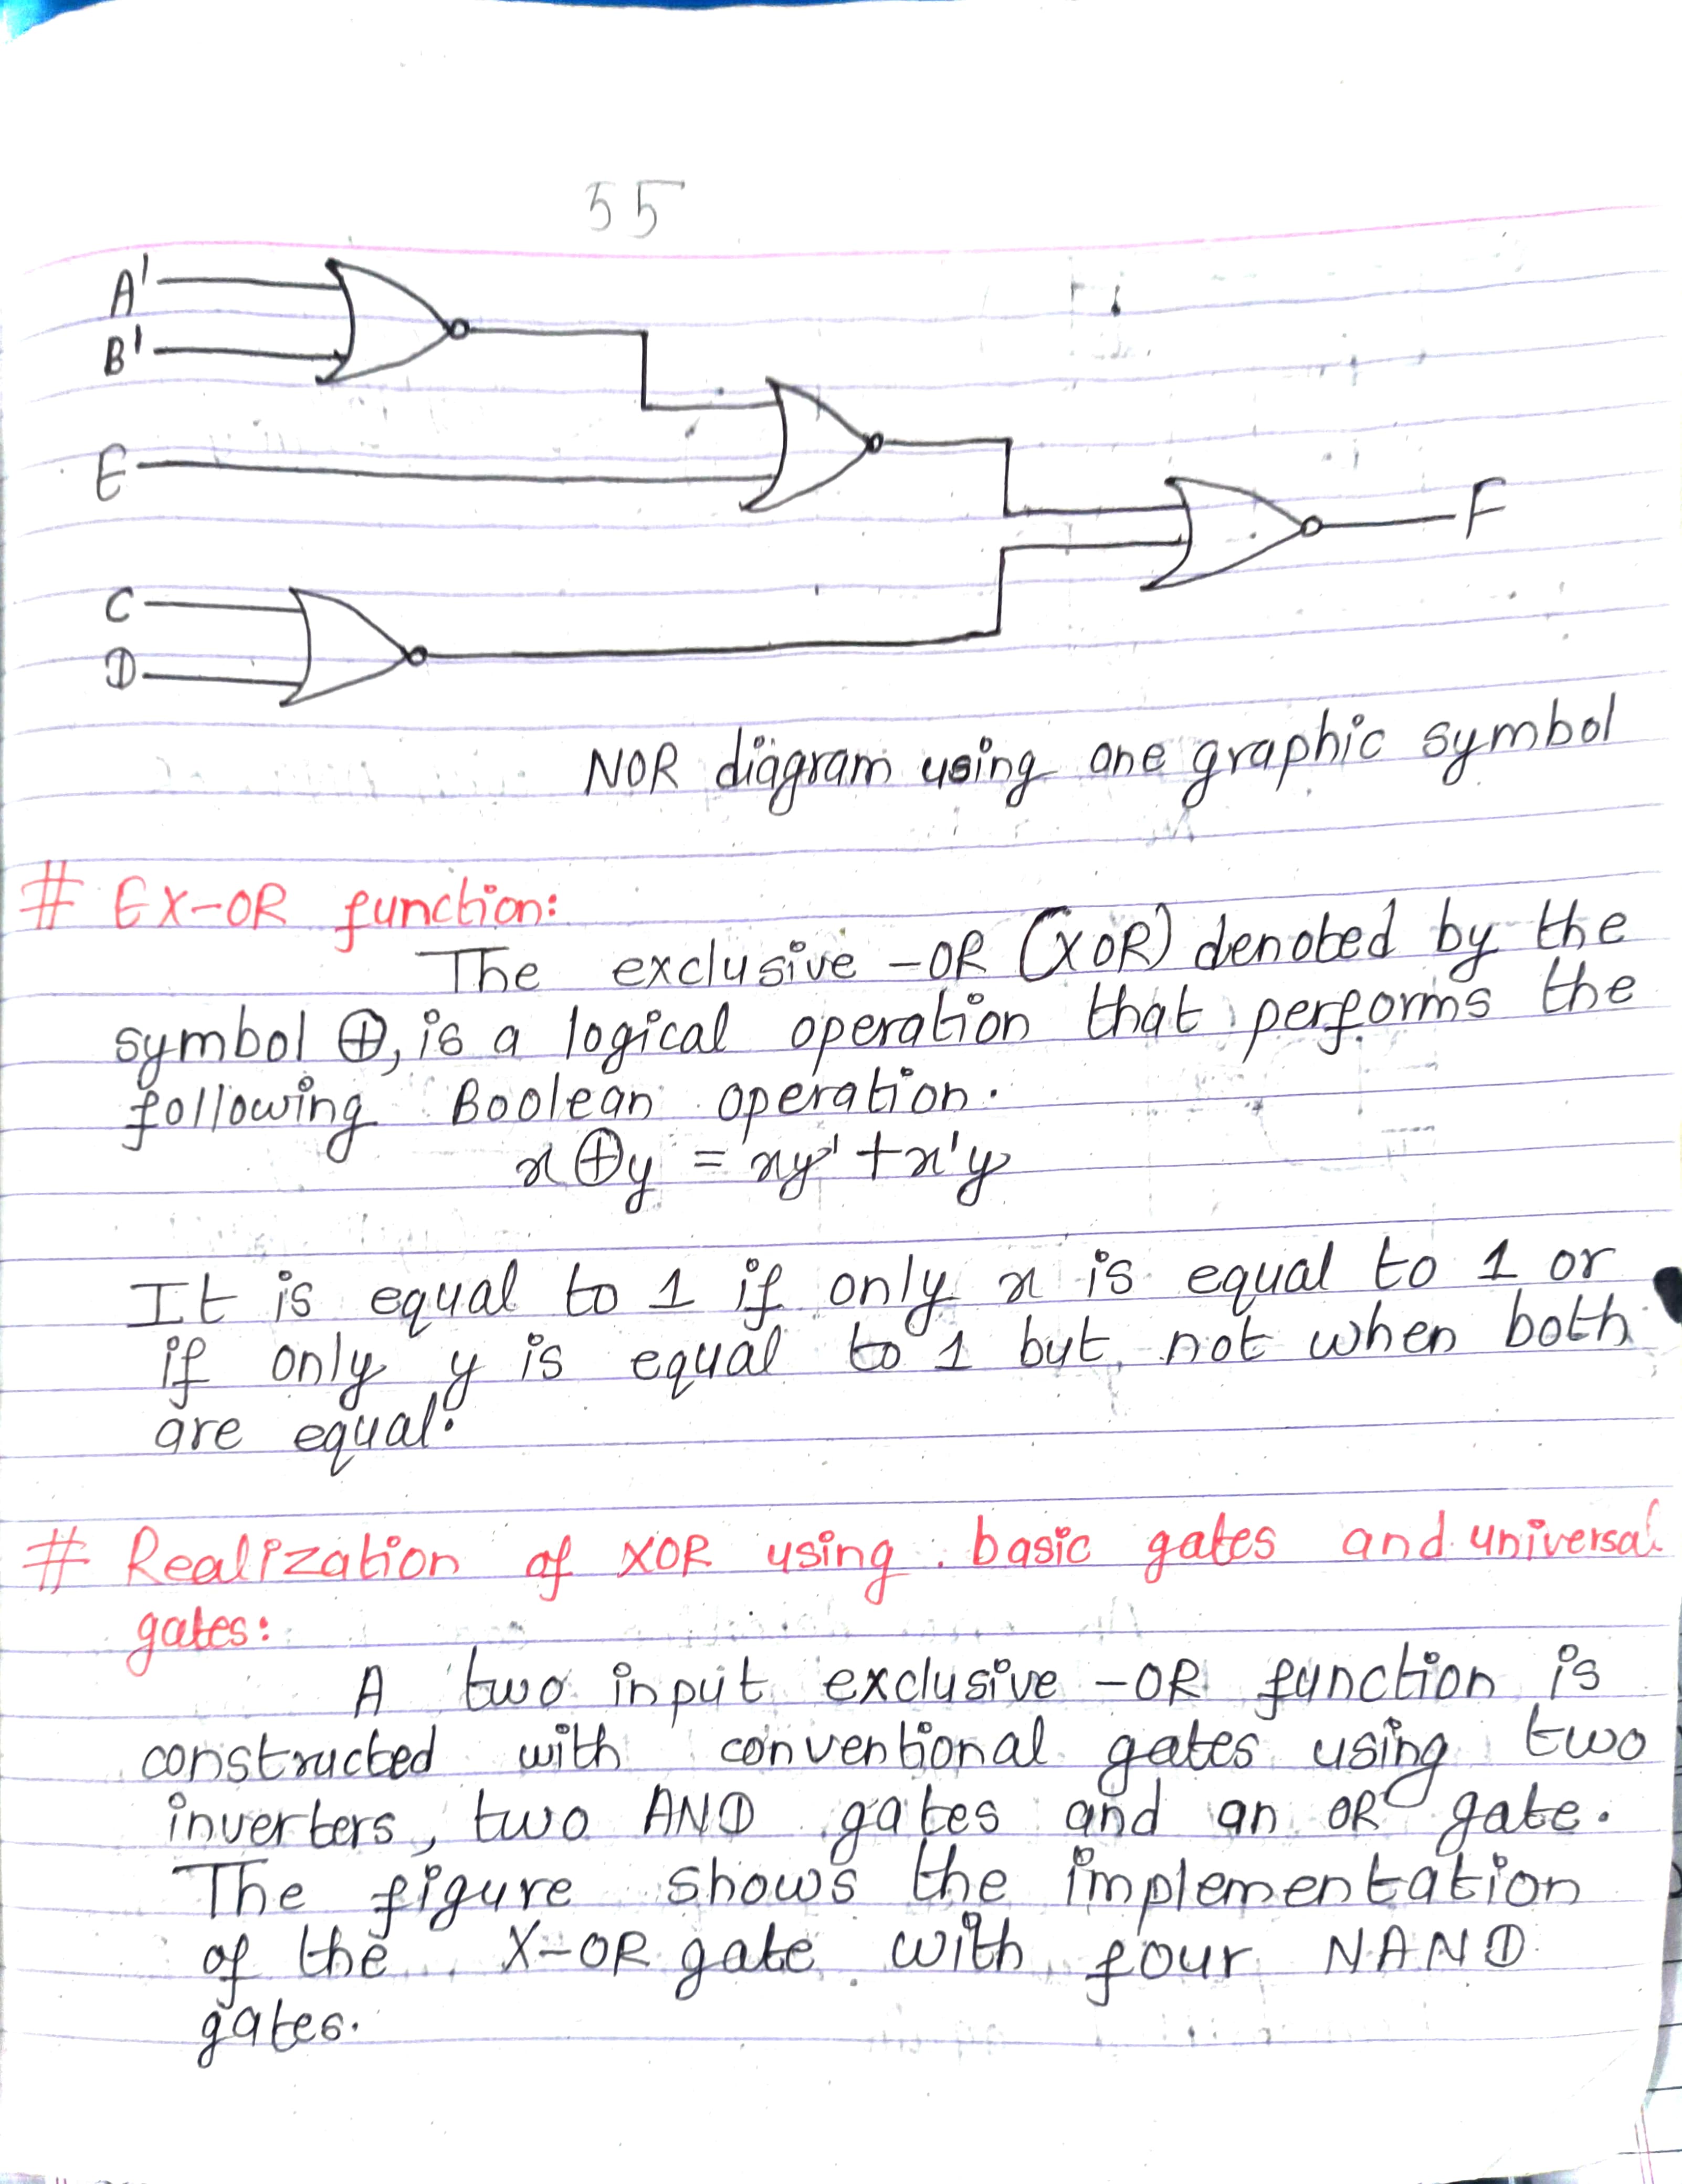 55
A'
B'
E
C
D
F
NOR diagram using one graphic symbol
# EX-OR function:
The exclusive -OR (XOR) denoted by the
symbol ⊕, is a logical operation that performs the
following Boolean operation.
x ⊕ y = xy' + x'y
It is equal to 1 if only x is equal to 1 or
if only y is equal to 1 but not when both
are equal.
# Realization of XOR using basic gates and universal
gates:
A two input exclusive -OR function is
constructed with conventional gates using two
inverters, two AND gates and an OR gate.
The figure shows the implementation
of the X-OR gate with four NAND
gates.